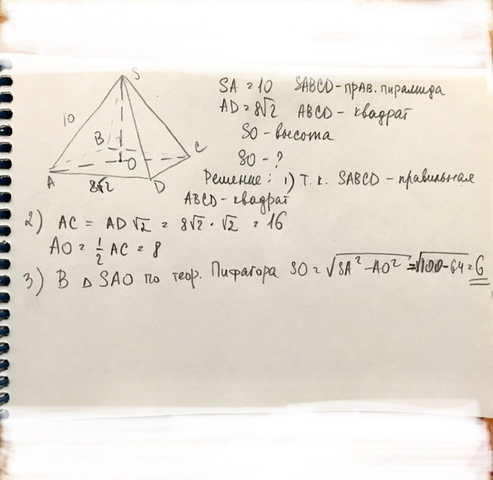 S
10
B
O
C
A
8√2
D
SA = 10 SABCD – прав. пирамида
AD = 8√2 ABCD – квадрат
SO – высота
SO – ?
Решение: 1) Т.к. SABCD – правильная
ABCD – квадрат
2) AC = AD√2 = 8√2 · √2 = 16
AO = 1/2 AC = 8
3) В △ SAO по теор. Пифагора SO = √(SA² – AO²) = √(100 – 64) = 6